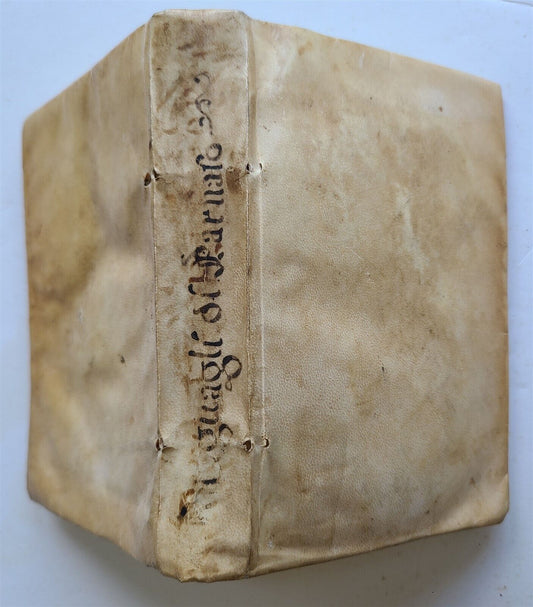 Raguagli di Parnaso